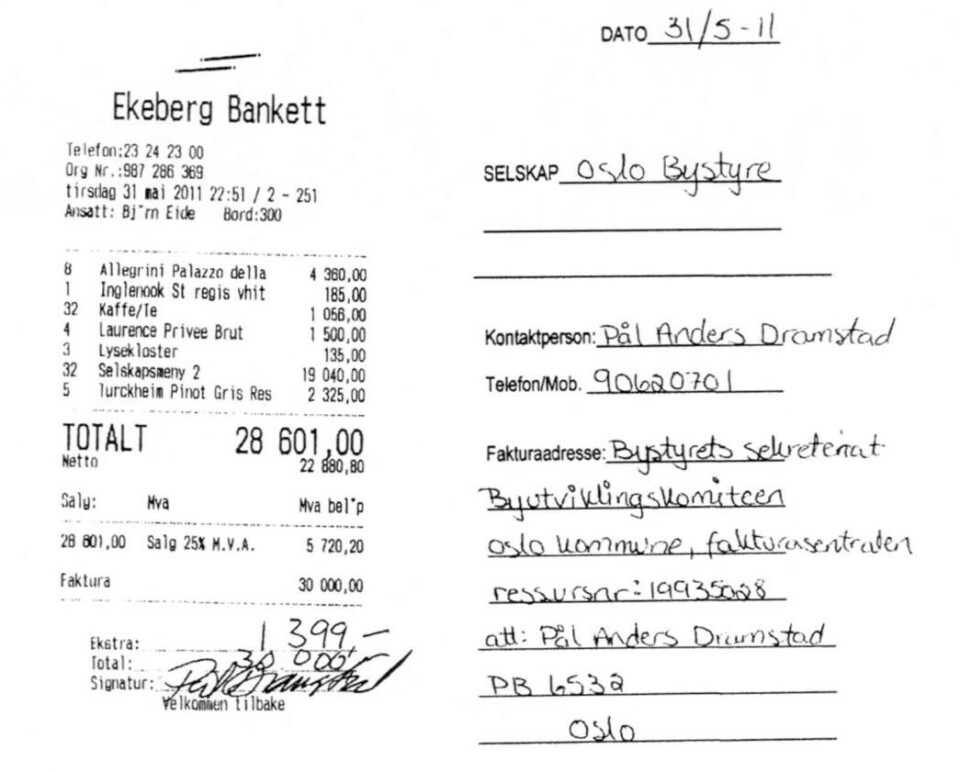 Ekeberg Bankett
Telefon:23 24 23 00
Org Nr.:987 286 369
tirsdag 31 mai 2011 22:51 / 2 - 251
Ansatt: Bj¨rn Eide Bord:300
8 Allegrini Palazzo della 4 360,00
1 Inglenook St regis vhit 185,00
32 Kaffe/Te 1 056,00
4 Laurence Privee Brut 1 500,00
3 Lysekloster 135,00
32 Selskapsmeny 2 19 040,00
5 Turckheim Pinot Gris Res 2 325,00
TOTALT 28 601,00
Netto 22 880,80
Salg: Mva Mva bel¨p
28 601,00 Salg 25% M.V.A. 5 720,20
Faktura 30 000,00
Ekstra: 1 399,-
Total: 30 000,-
Signatur:
Velkommen tilbake
DATO 31/5-11
SELSKAP Oslo Bystyre
Kontaktperson: Pål Anders Dramstad
Telefon/Mob. 90620701
Fakturaadresse: Bystyrets sekretariat
Byutviklingskomiteen
Oslo kommune, fakturasentralen
ressursnr: 19935028
att: Pål Anders Dramstad
PB 6532
Oslo